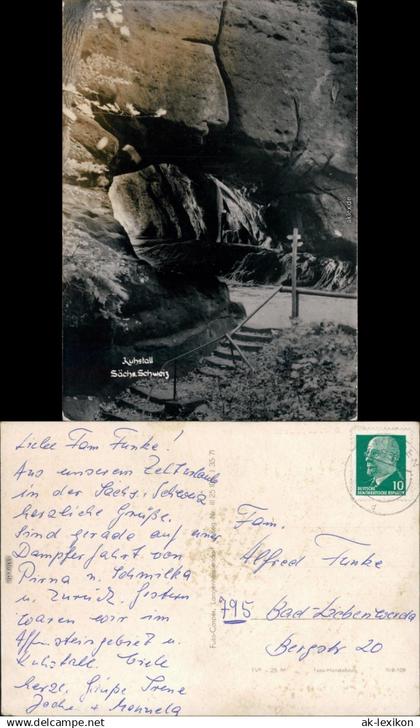 Kuhstall
Sächs. Schweiz
Liebe Fam Funke!
Aus unserem Zelturlaub
in der Sächs. Schweiz
herzliche Grüße.
Sind gerade auf einer
Dampferfahrt von
Pirna n. Schmilka
u. zurück. Gestern
waren wir im
Affensteingebiet u.
Kuhstall. Viele
herzl. Grüße Irene
Joche + Manuela
Fam.
Alfred Funke
795 Bad-Liebenwerda
Bergstr 20
10
DEUTSCHE
DEMOKRATISCHE REPUBLIK
© ak-lexikon
www.ak-ansichtskarten.de